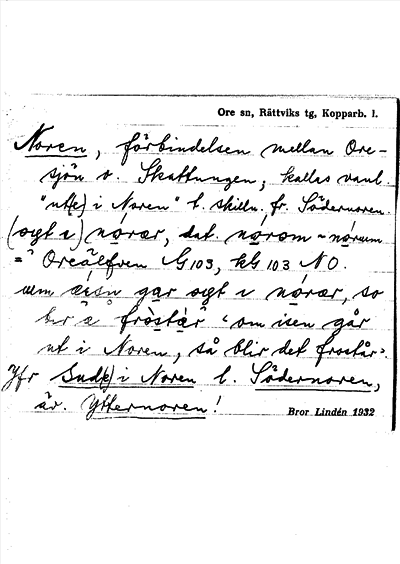 Ore sn, Rättviks tg, Kopparb. l.
Noren, förbindelsen mellan Ore-
sjön o. Skattungen; kallas vanl.
"ut(e) i Noren" t. skilln. fr. Södernoren.
(ogt i) nórær, dat. nórom = nórum
= Oreälfven G103, kG 103 NO.
um æisn gar ogt i nórær, so
bir ä fròstár "om isen går
ut i Noren, så blir det frostår".
Jfr Sud(e) i Noren l. Södernoren,
äv. Ytternoren!
Bror Lindén 1932